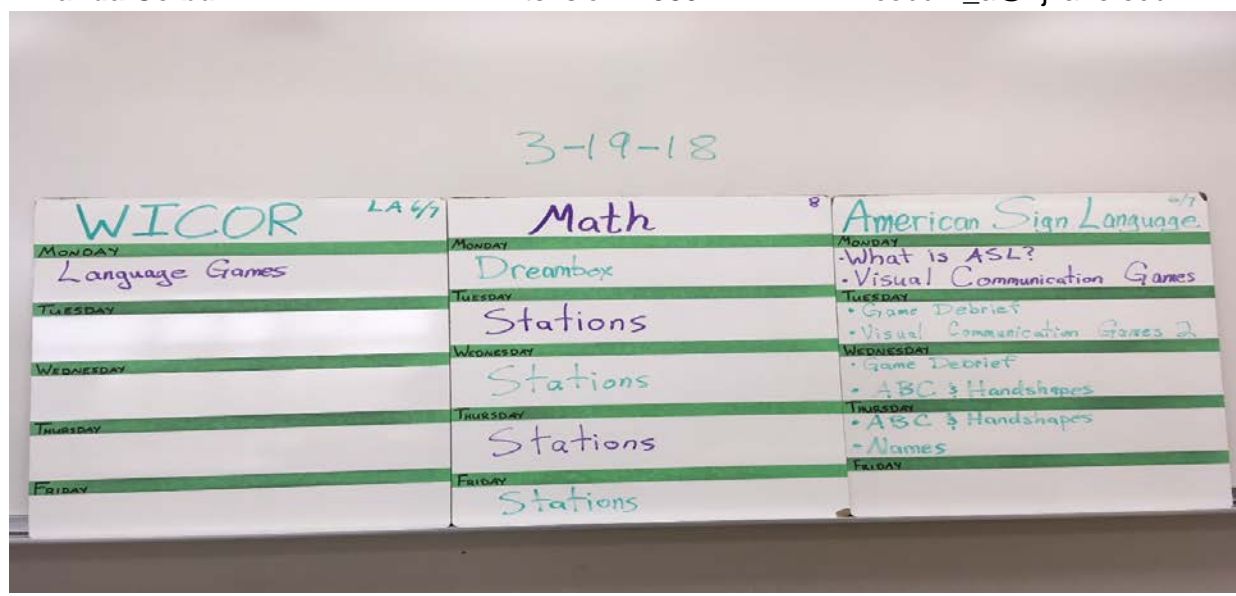 3-19-18
WICOR LA 6/7
MONDAY
Language Games
TUESDAY
WEDNESDAY
THURSDAY
FRIDAY
Math 8
MONDAY
Dreambox
TUESDAY
Stations
WEDNESDAY
Stations
THURSDAY
Stations
FRIDAY
Stations
American Sign Language 6/7
MONDAY
•What is ASL?
•Visual Communication Games
TUESDAY
•Game Debrief
•Visual Communication Games 2
WEDNESDAY
•Game Debrief
•ABC & Handshapes
THURSDAY
•ABC & Handshapes
•Names
FRIDAY